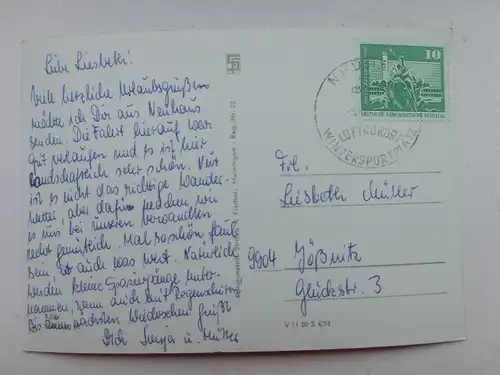 Liebe Liesbeth!
Viele herzliche Urlaubsgrüße
möchte ich Dir aus Neuhaus
senden. Die Fahrt hierauf war
gut verlaufen und es ist hier
landschaftlich sehr schön. Nur
ist es nicht das richtige Wander-
wetter, aber dafür machen wir
es uns bei unseren Verwandten
recht gemütlich. Mal so schön faul
sein, ist auch was wert. Natürlich
werden kleine Spaziergänge unter-
nommen, wenn auch mit Regenschirm.
Bis zum nächsten Wiedersehen grüßt
Dich u. Mutter
Meiningen · Reg.-Nr. 22
10
DEUTSCHE DEMOKRATISCHE REPUBLIK
LUFTKURORT
WINTERSPORTPLATZ
Frl.
Liesbeth Müller
9904 Jößnitz
Glückstr. 3
V 11 50 S 4/74